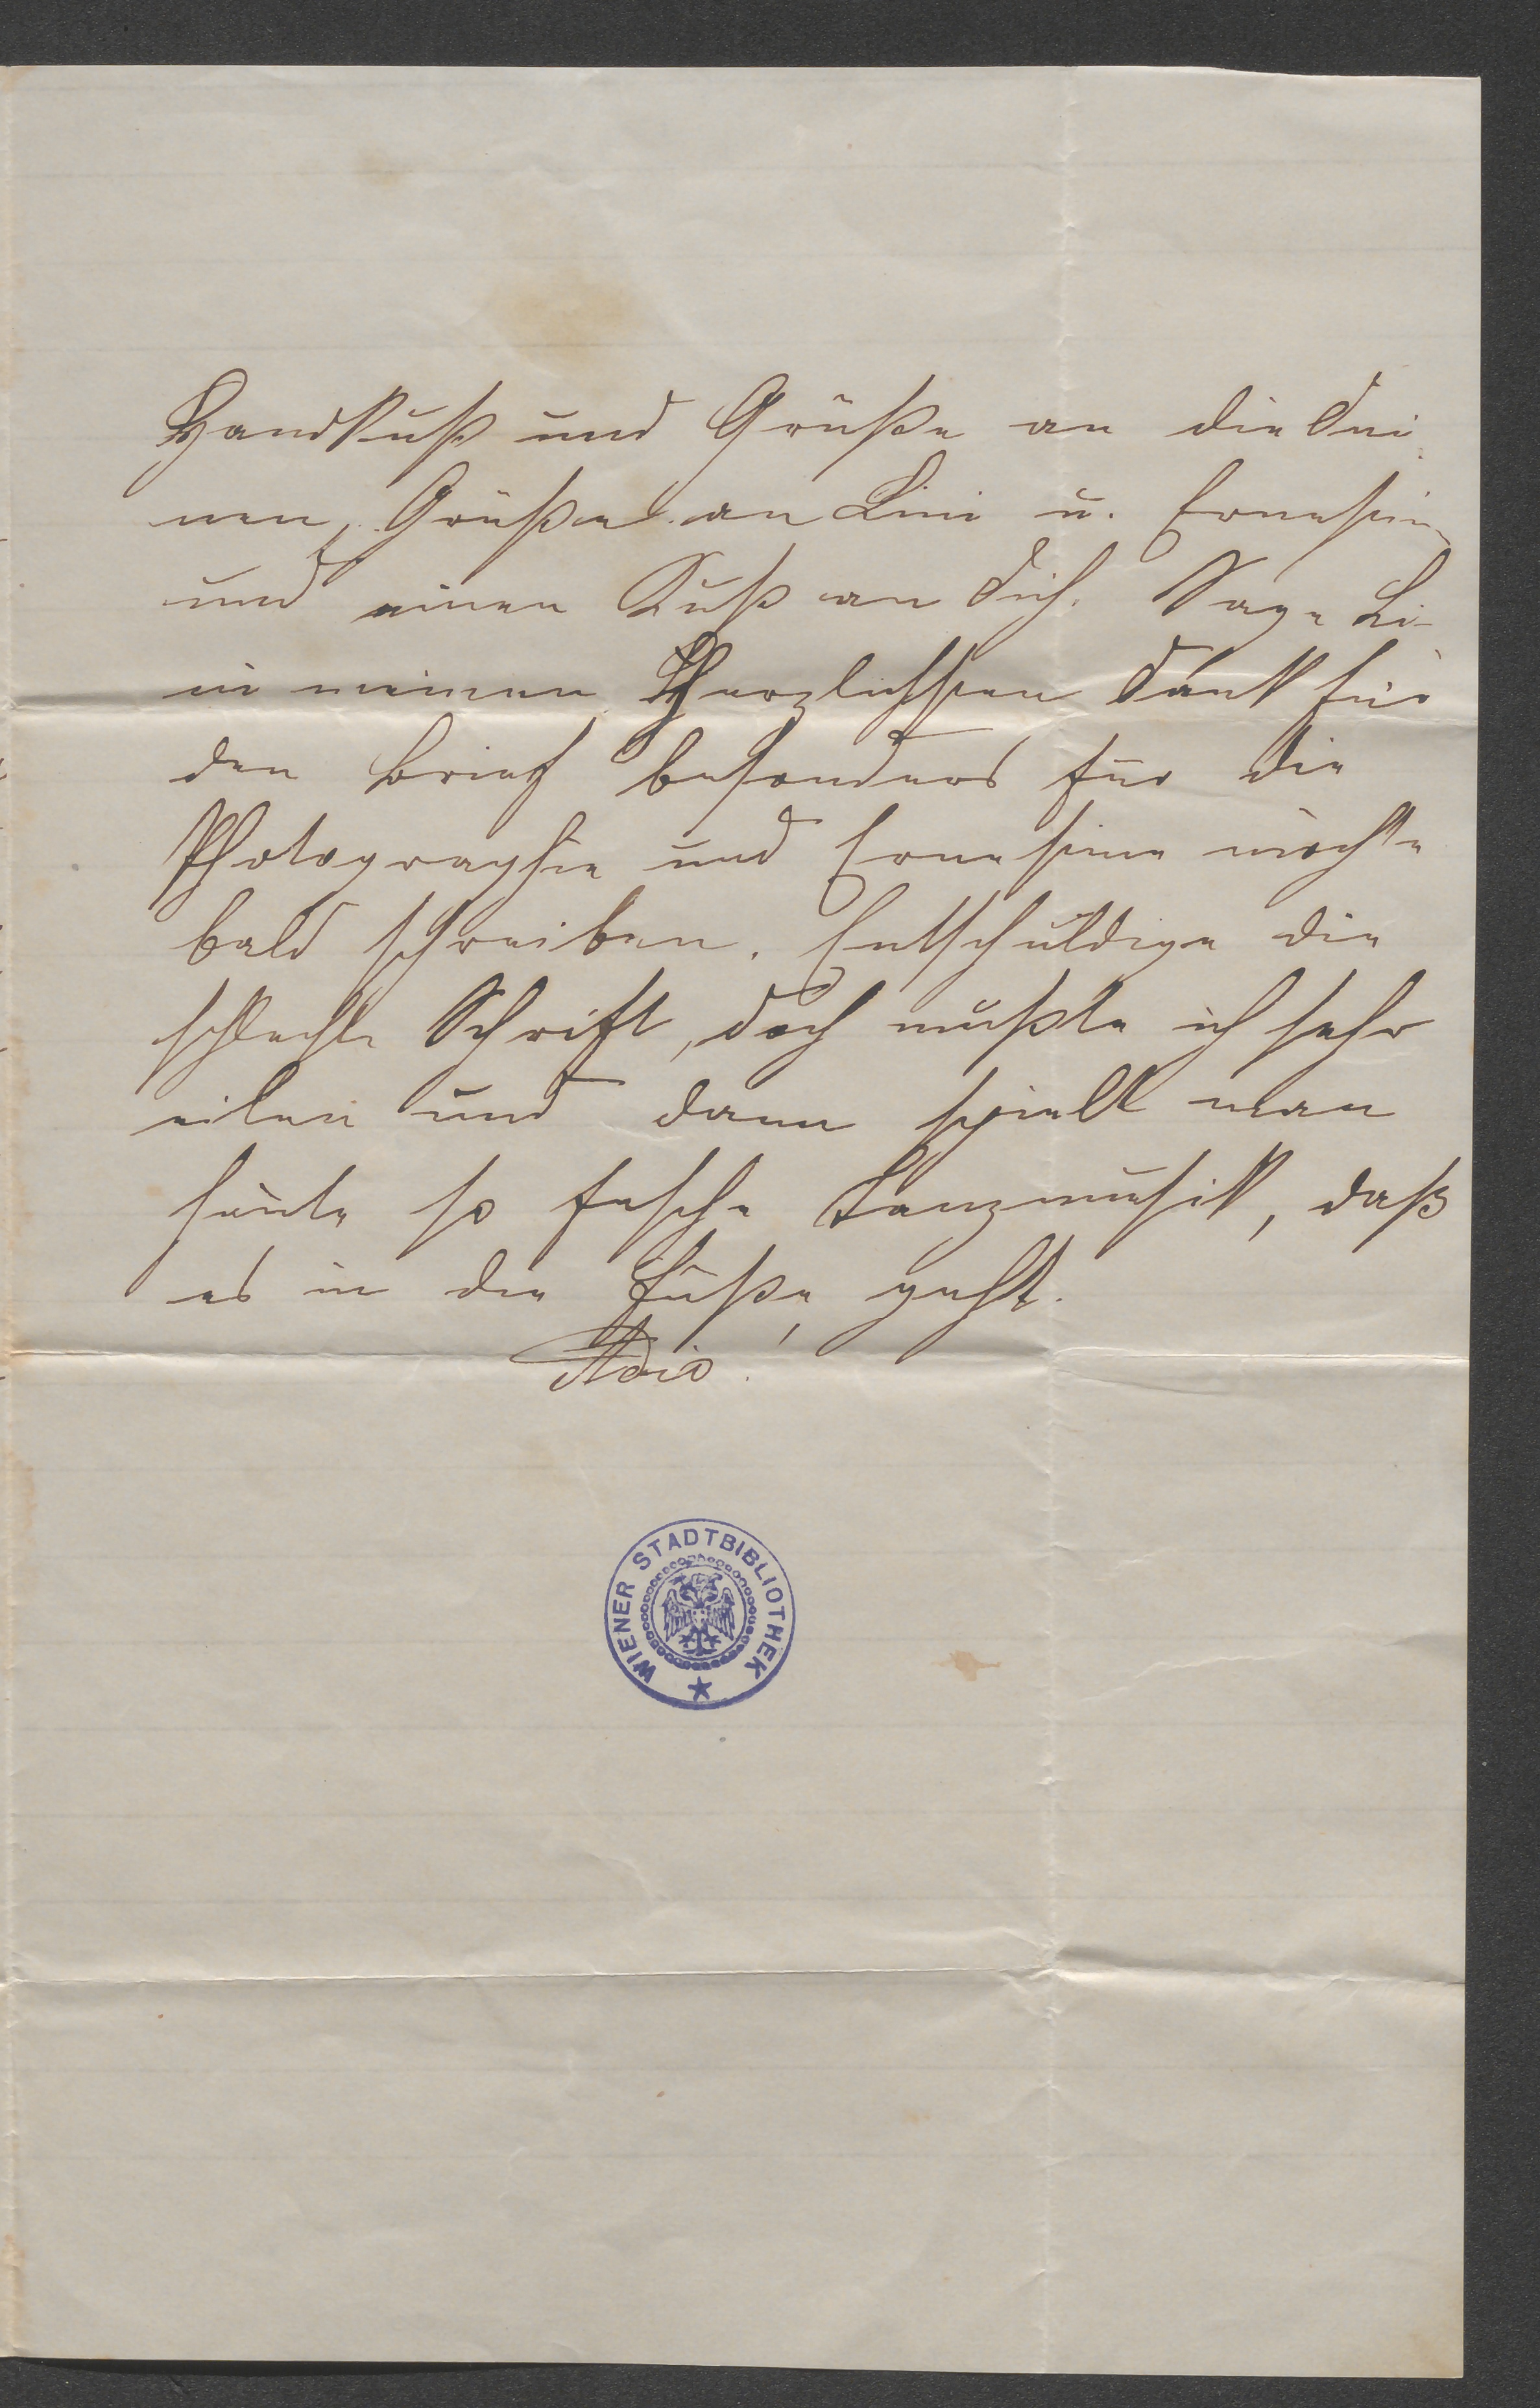 Handkuß und Grüße an die Dei-
nen, Grüße an Lini u. Ernestin
und einen Kuß an Dich. Sage Li-
ni meinen Herzlichsten Dank für
den Brief besonders für die
Photographie und Ernestine möchte
bald schreiben. Entschuldige die
schlechte Schrift, doch mußte ich sehr
eilen und dann spielt man
heute so fesche Tanzmusik, daß
es in die Füße geht.
Adio!
WIENER STADTBIBLIOTHEK